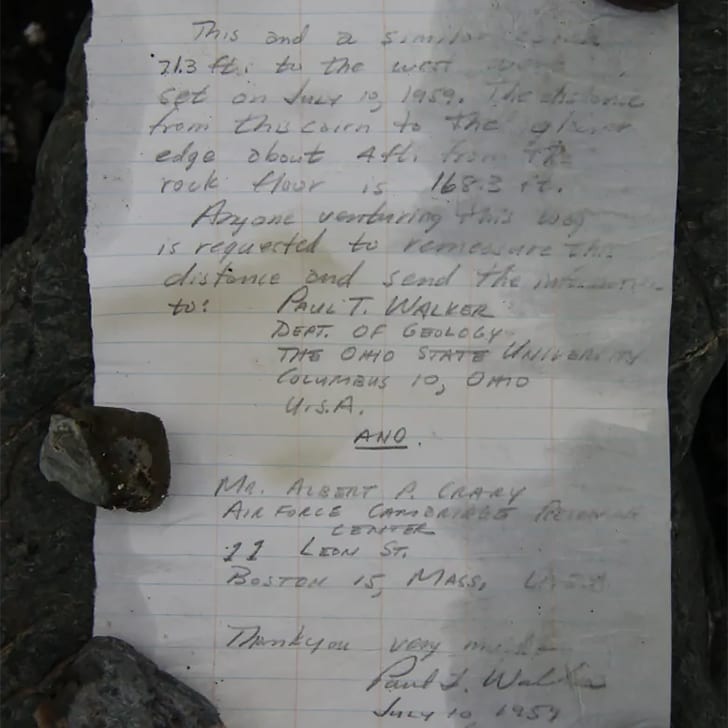 This and a similar cairn
71.3 ft. to the west were
set on July 10, 1959. The distance
from this cairn to the glacier
edge about 4 ft. from the
rock floor is 168.3 ft.
Anyone venturing this way
is requested to remeasure this
distance and send the information
to: PAUL T. WALKER
DEPT. OF GEOLOGY
THE OHIO STATE UNIVERSITY
COLUMBUS 10, OHIO
U.S.A.
AND.
MR. ALBERT P. CRARY
AIR FORCE CAMBRIDGE RESEARCH
CENTER
11 LEON ST.
BOSTON 15, MASS, U.S.A.
Thankyou very much
Paul T. Walker
July 10, 1959